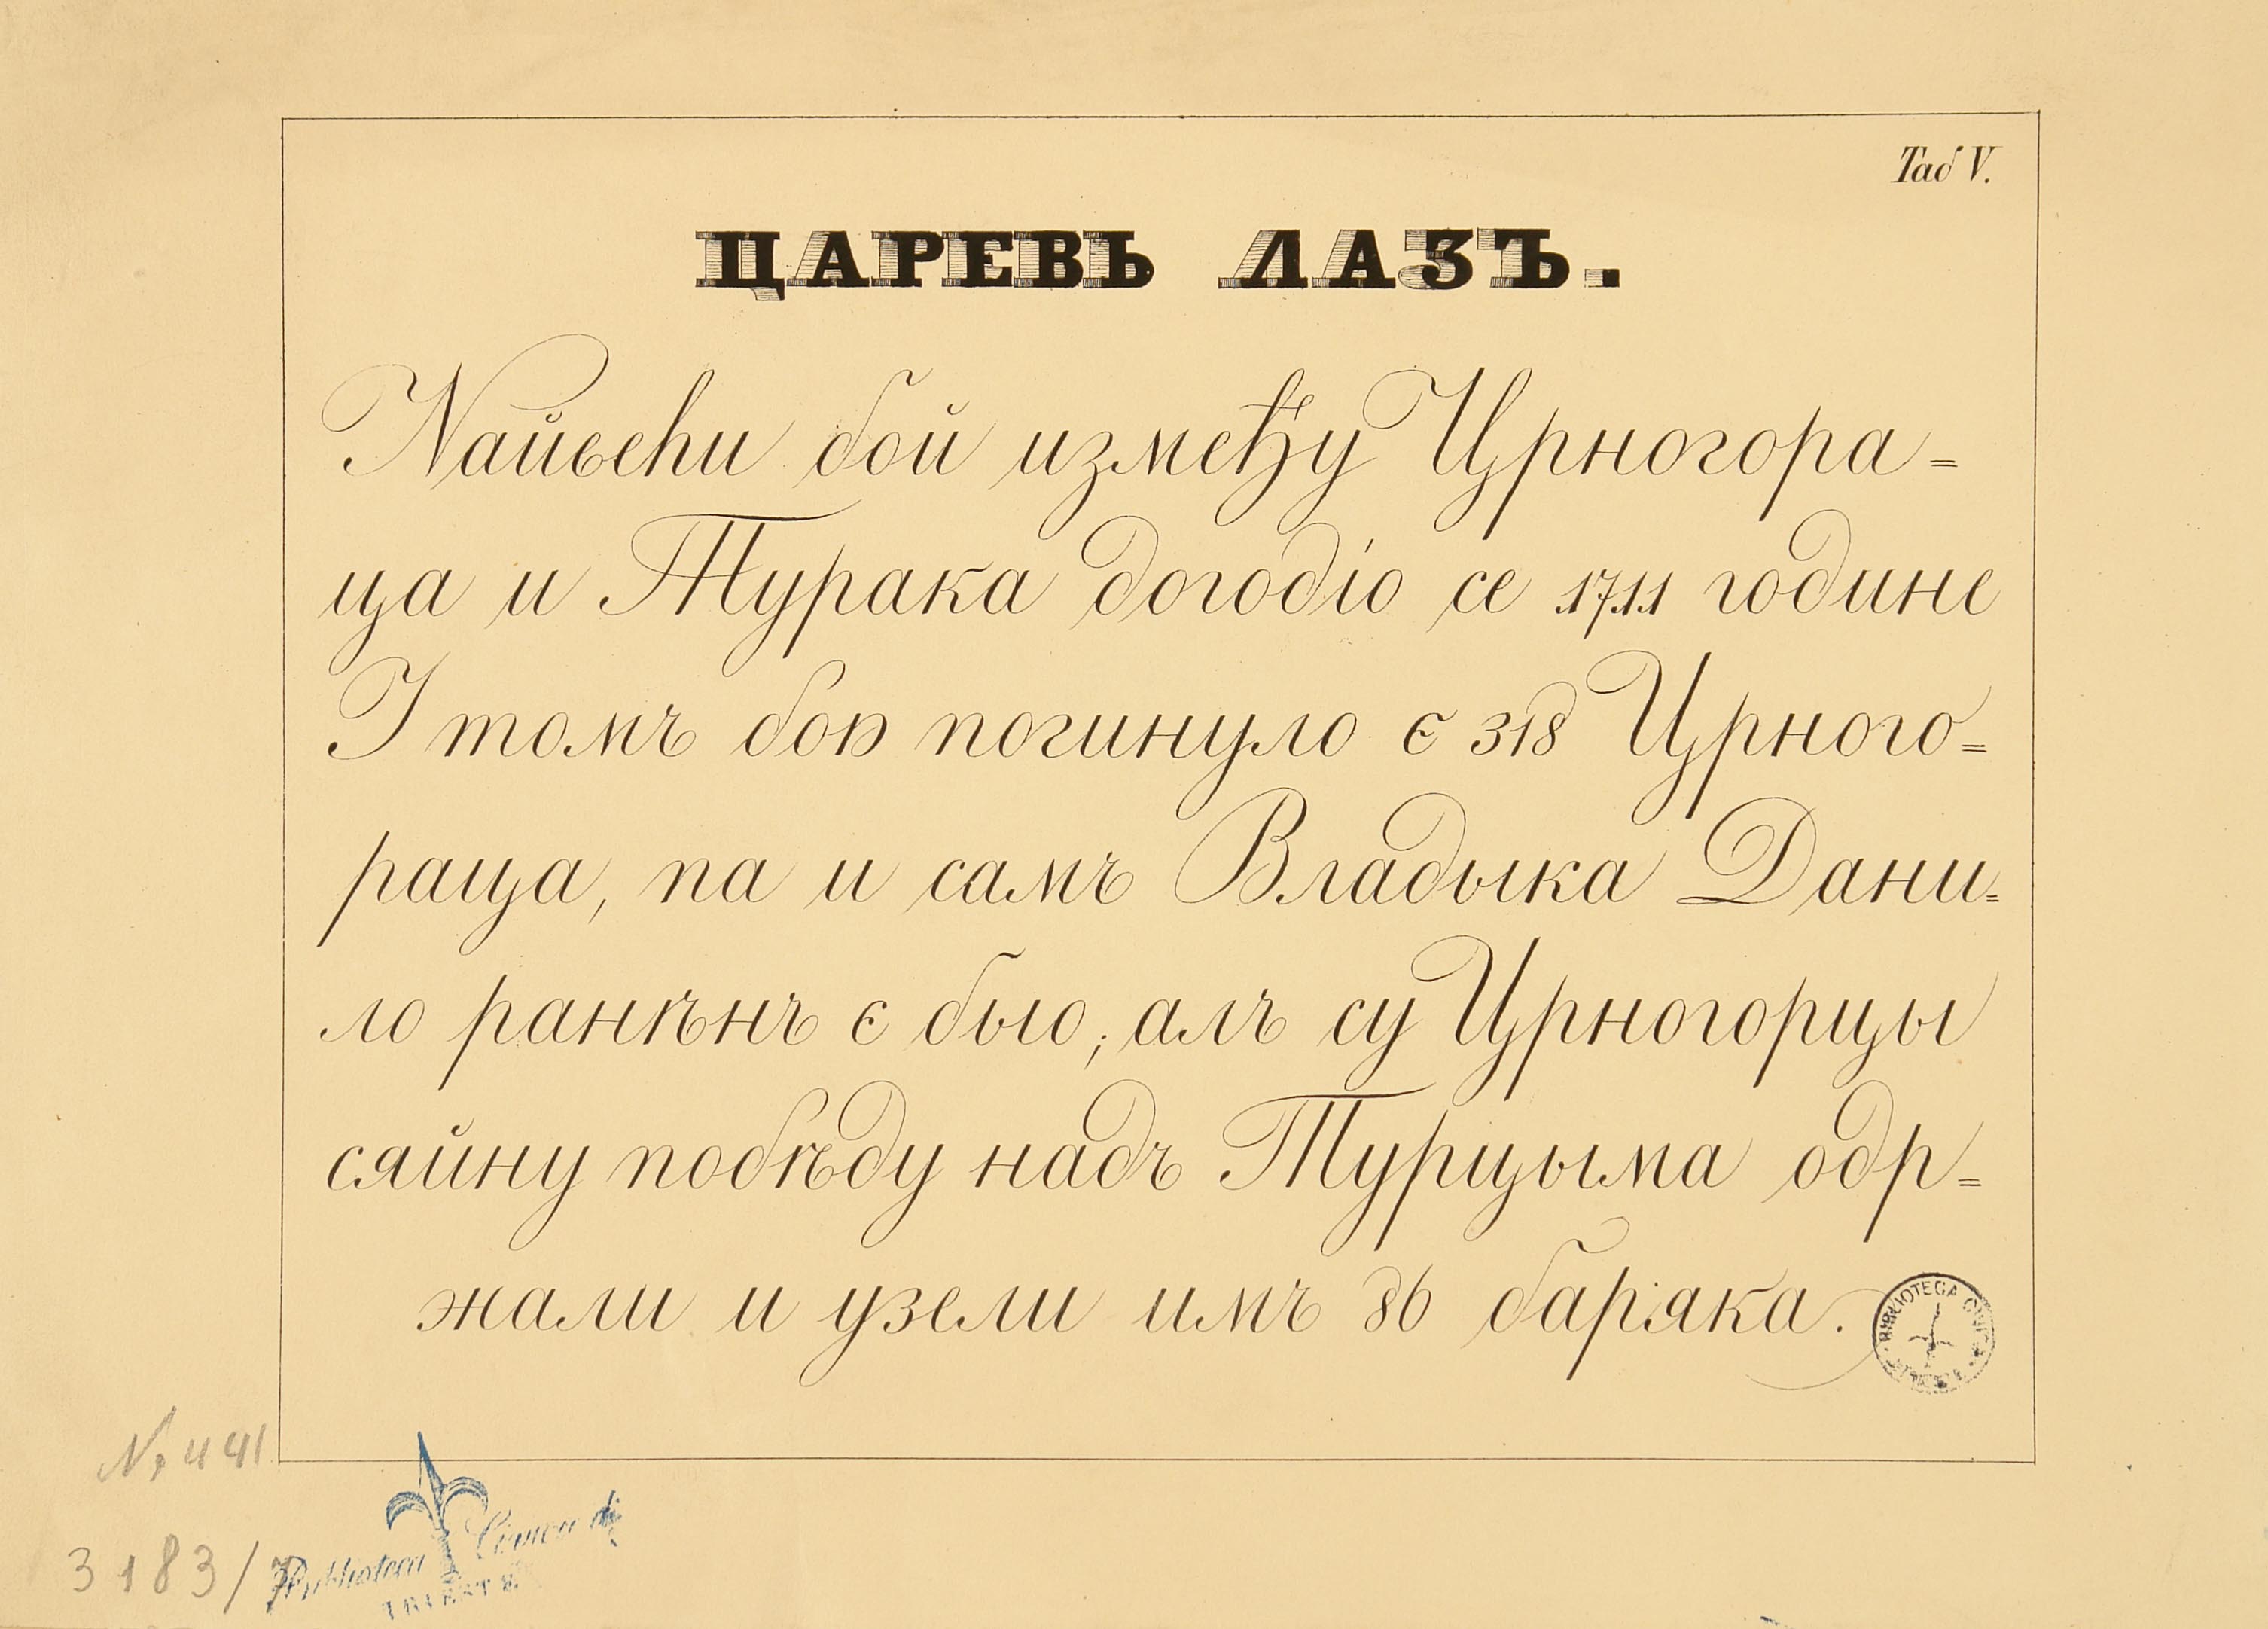 Таб V.
ЦАРЕВЬ ЛАЗЪ.
Найвећи бой између Црногора=
ца и Турака догодіо се 1711 године
У томъ бою погинуло є 318 Црного=
раца, па и самъ Владыка Дани=
ло ранѣнъ є было; алъ су Црногорцы
сяйну побѣду надъ Турцыма одр=
жали и узели имъ 86 баряка.
BIBLIOTECA CIVICA
№ 441
3183/
Biblioteca Civica di
TRIESTE